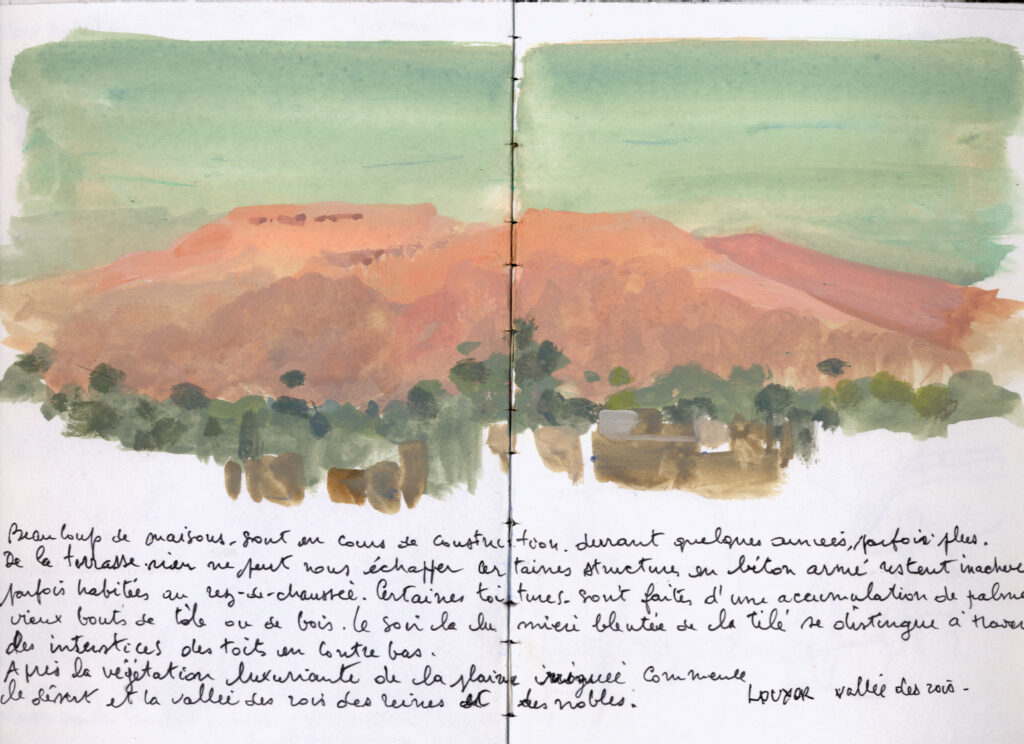 Beaucoup de maisons sont en cours de construction durant quelques années, parfois plus.
De la terrasse rien ne peut nous échapper certaines structures en béton armé restent inachevé
parfois habitées au rez-de-chaussée. Certaines toitures sont faites d'une accumulation de palme
vieux bouts de tôle ou de bois. Le soir la lumière bleutée de la télé se distingue à travers
des interstices des toits en contre bas.
Après la végétation luxuriante de la plaine irriguée commence
le désert et la vallée des rois des reines et des nobles.
LOUXOR vallée des rois -